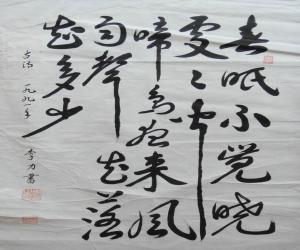 春眠不觉晓
處々闻
啼鸟夜来风
雨聲花落
知多少
古诗 一九九一年 李力書